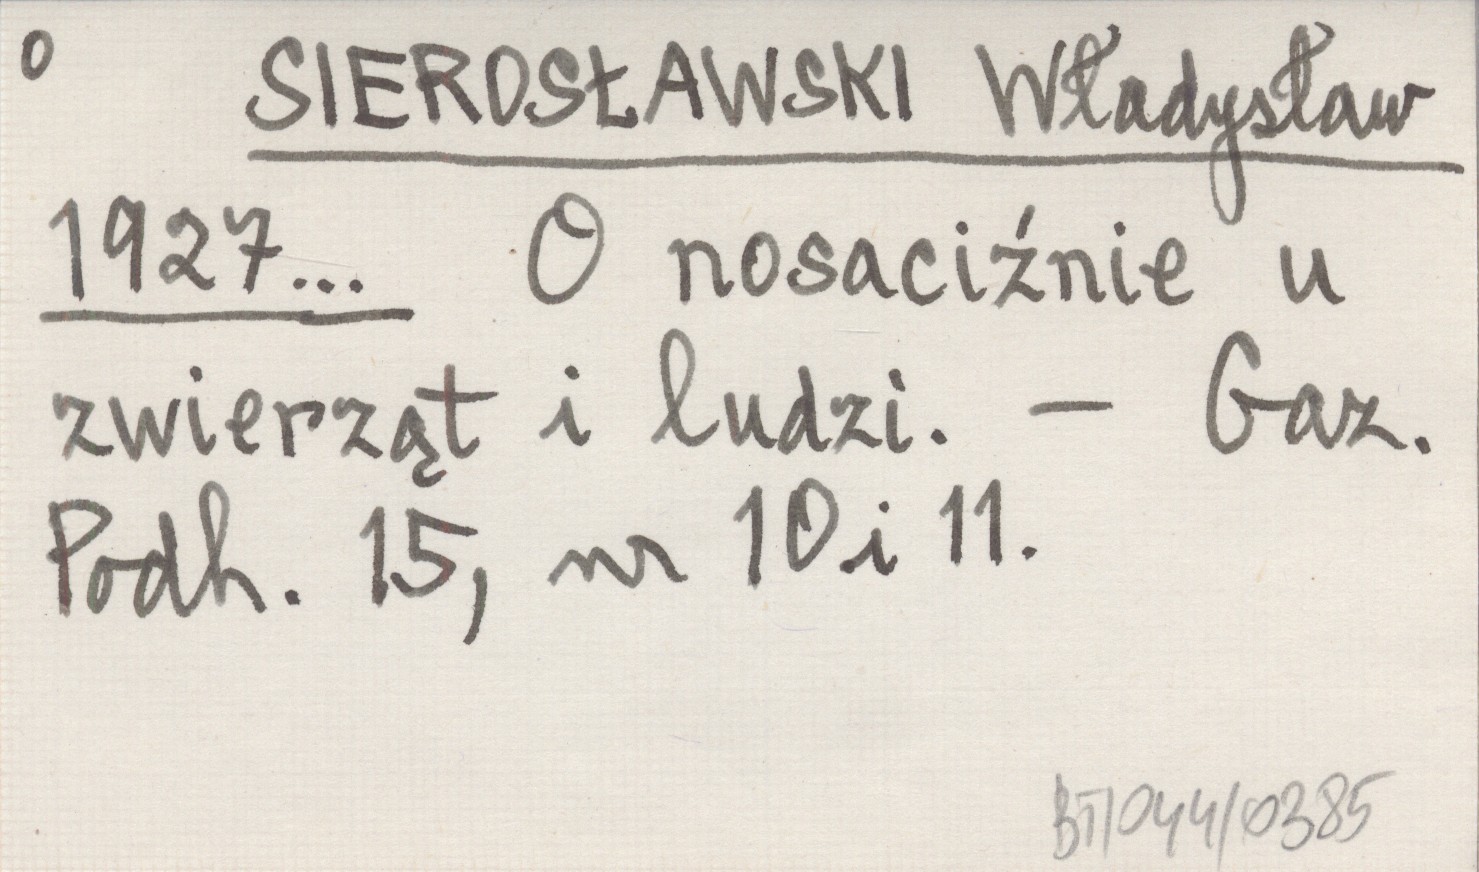 0 SIEROSŁAWSKI Władysław
1927... O nosaciźnie u
zwierząt i ludzi. — Gaz.
Podh. 15, nr 10 i 11.
BT/044/0385